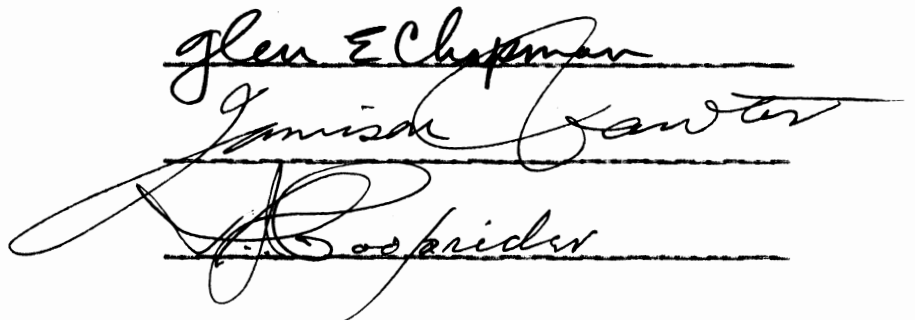 Glen E Chapman
Jamison Lawter
Cooprider